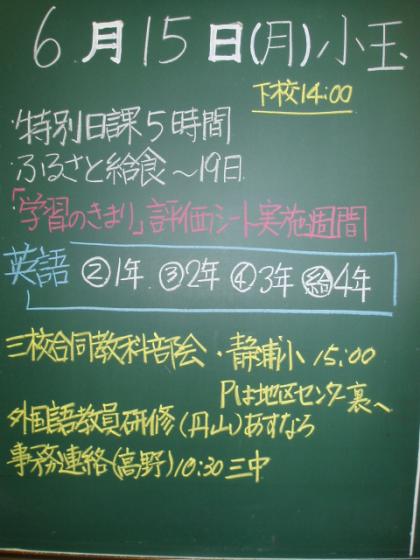 6月15日(月)小玉
下校14:00
・特別日課5時間
・ふるさと給食～19日
・「学習のきまり」評価シート実施週間
英語 ②1年 ③2年 ④3年 ㊗4年
三校合同教科部会・静浦小 15:00
Pは地区センター裏へ
外国語教員研修(丹山)あすなろ
事務連絡(高野)10:30三中